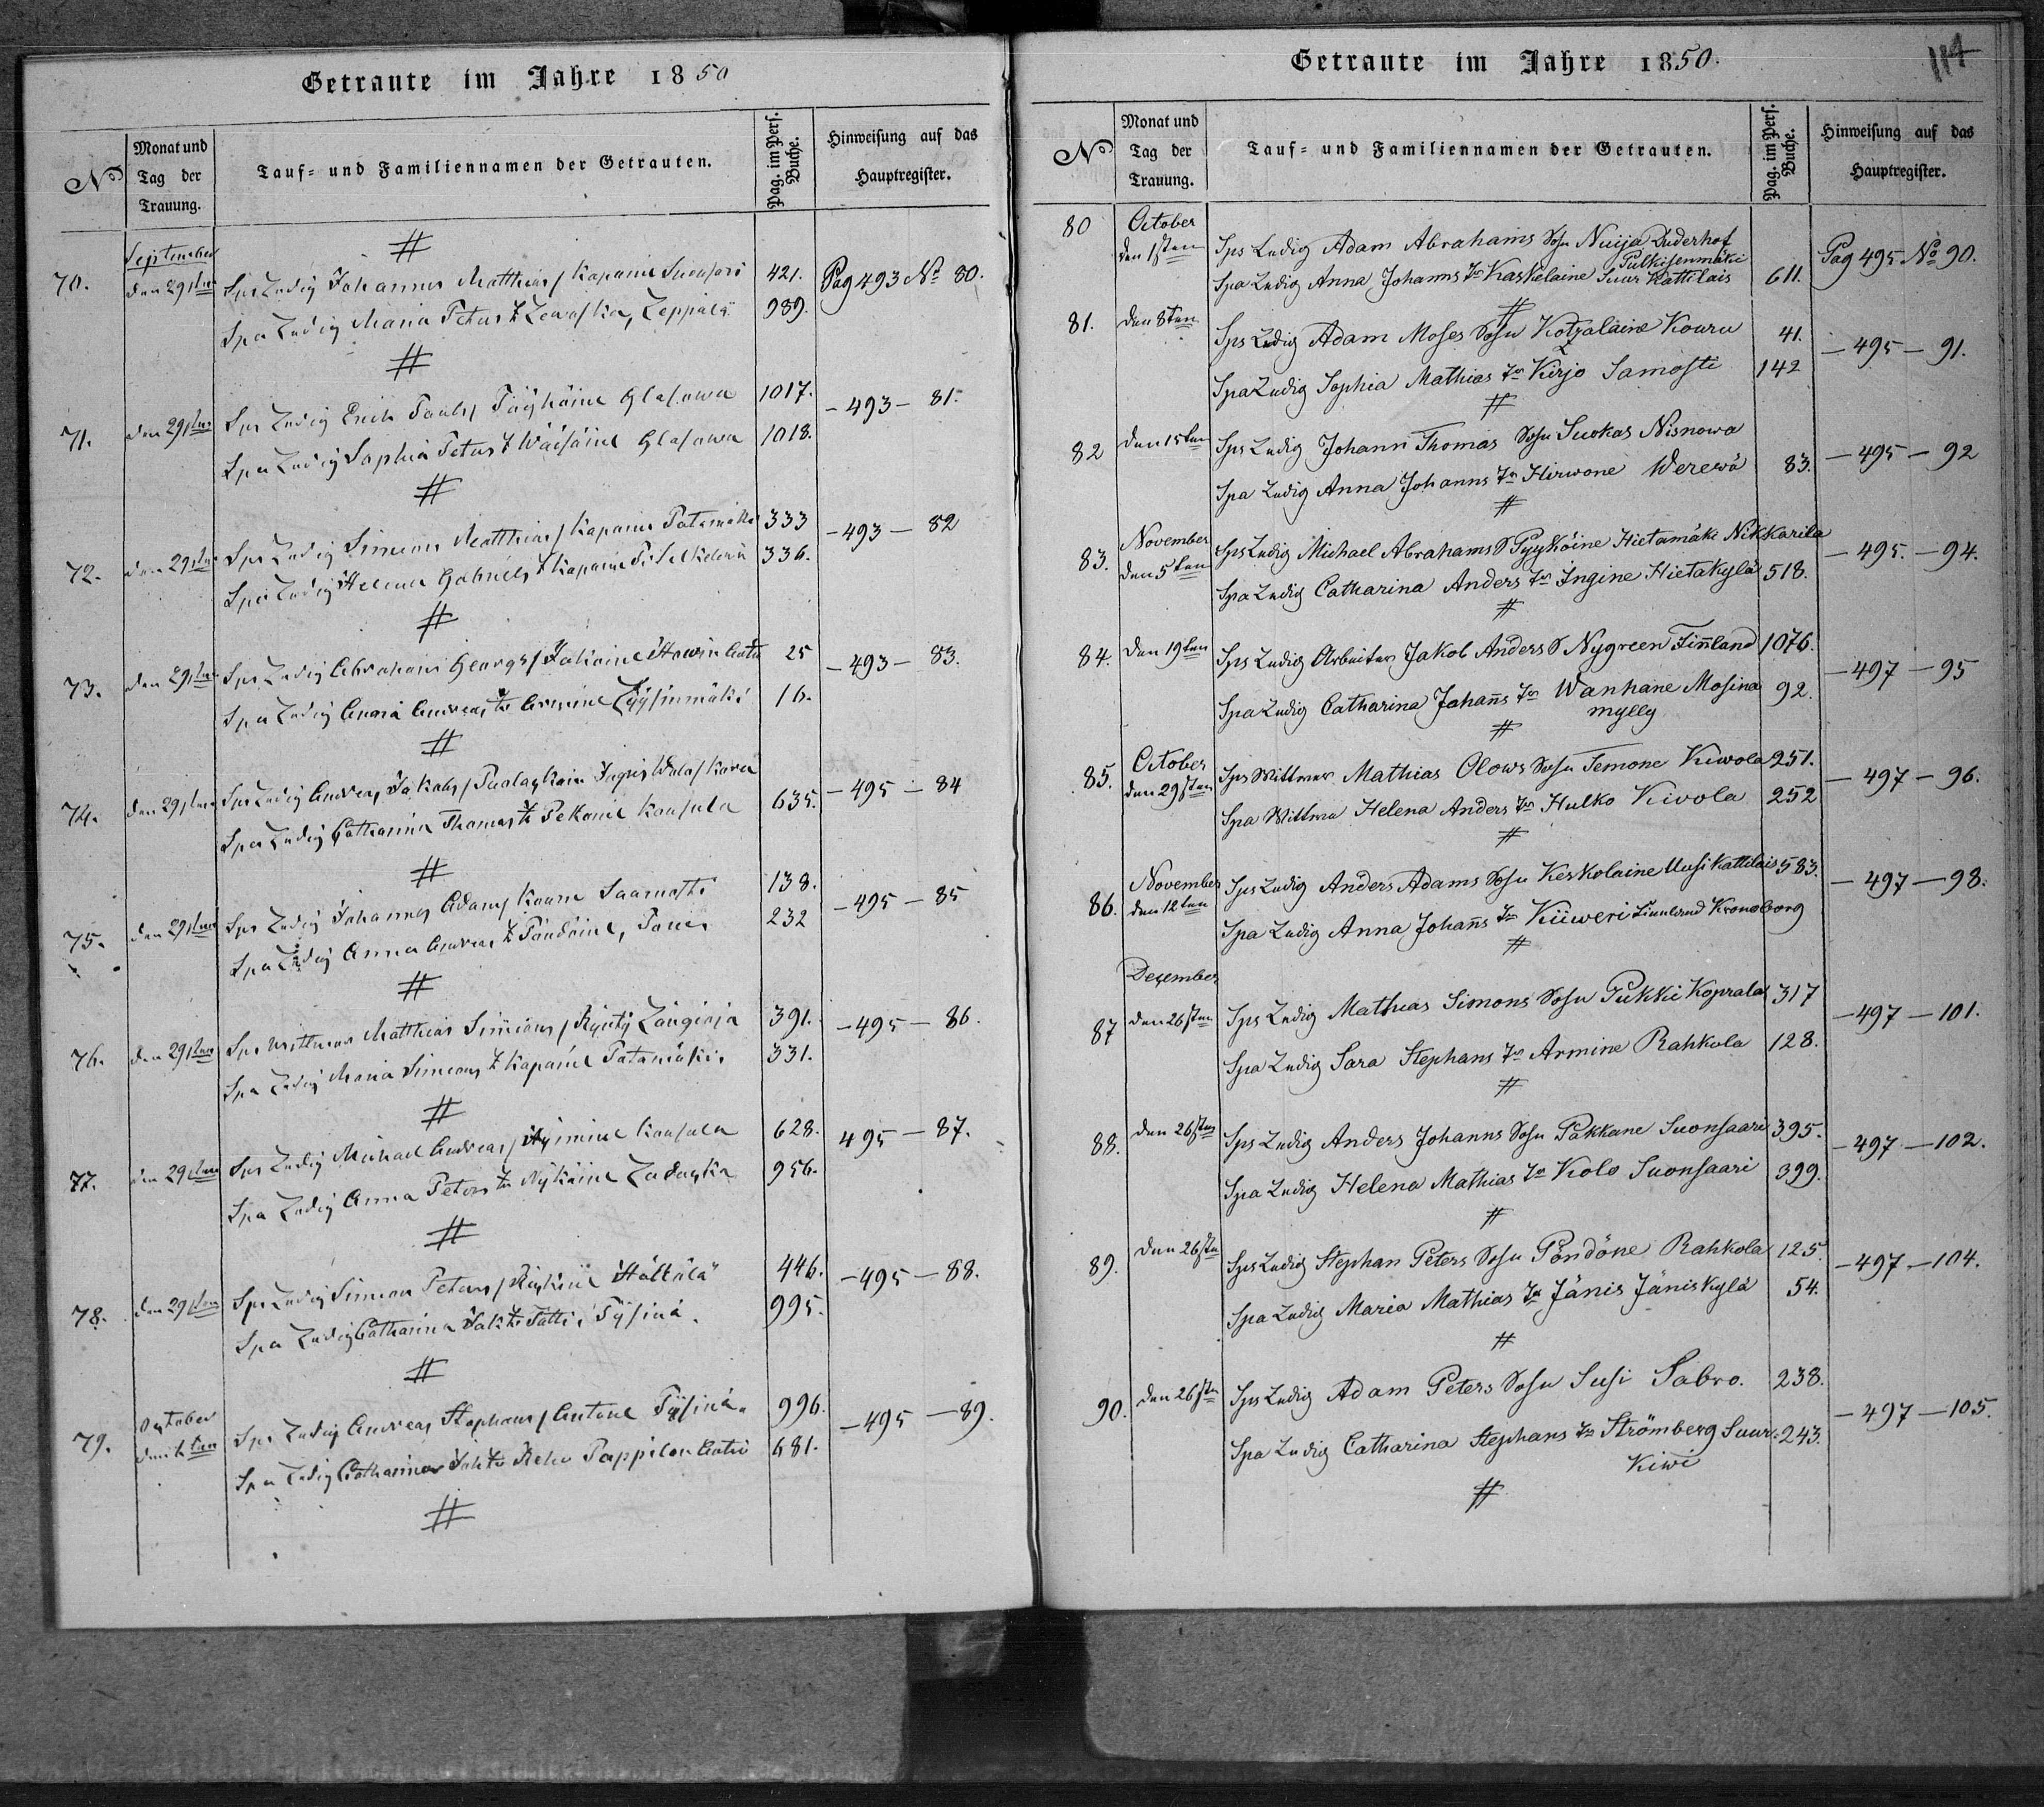 Getraute im Jahre 1850
No
Monat und Tag der Trauung.
Tauf- und Familiennamen der Getrauten.
Pag. im Pers. Buche.
Hinweisung auf das Hauptregister.
September
70. den 29sten Sps Ledig Johannes Matthias Kapanie Suensari 421. Pag 493 No 80.
Spa Ledig Maria Peters Tr Zeppälä 989.
71. den 29sten Sps Ledig Erich Pauls Glasowa 1017. - 493 - 81.
Spa Ledig Sophia Peters Tr Wäisäine Glasowa 1018.
72. den 29sten Sps Ledig Simeon Matthias Kapanie Patamäki 333 - 493 - 82
Spa Ledig Helena Gabriels Tr Kapanie 336.
73. den 29sten Sps Ledig Abraham Georgs 25 - 493 - 83.
Spa Ledig Anna Andreas Tr 16.
74. den 29sten Sps Ledig Andreas Jakobs
- 495 - 84
Spa Ledig Catharina Thomas Tr Pekonie Konsula 635.
75. den 29sten Sps Ledig Johannes Adams Kaure Saamosti 138. - 495 - 85
Spa Ledig Anna Andreas Tr Pöndöine, 232
76. den 29sten Sps Wittwer Matthias Simeons 391. - 495 - 86.
Spa Ledig Maria Simeons Tr Kapanie Patamäki. 331.
77. den 29sten Sps Ledig Michael Andreas Konsula 628. 495 - 87.
Spa Ledig Anna Peters Tr 956.
78. den 29sten Sps Ledig Simeon Peters Hättälä 446. - 495 - 88.
Spa Ledig Catharina Jak Tr Tatti 995.
October
79. Sps Ledig Andreas Stephans Antone 996. - 495 - 89.
Spa Ledig Catharina Jak Tr 681.
Getraute im Jahre 1850.
114
No
Monat und Tag der Trauung.
Tauf- und Familiennamen der Getrauten.
Pag. im Pers. Buche.
Hinweisung auf das Hauptregister.
80 October
den 1sten Sps Ledig Adam Abrahams Sohn Nuija Duderhof
Pulkisenmäki
Spa Ledig Anna Johanns Tr Kaskelaine Suur Kattilais 611. Pag 495 No 90.
#
81. den 8ten Sps Ledig Adam Moses Sohn Kotzalaine Kouru 41. - 495 - 91.
Spa Ledig Sophia Mathias Tr Kirjo Samosti 142
#
82 den 15ten Sps Ledig Johann Thomas Sohn Suokas Nisnowa - 495 - 92
Spa Ledig Anna Johanns Tr Hirwone Werewä 83.
#
November
83. den 5ten Sps Ledig Michael Abrahams S Pyyköine Hietamäki Nikkarila - 495 - 94.
Spa Ledig Catharina Anders Tr Ingine Hietakylä 518.
#
84. den 19ten Sps Ledig Arbeiter Jakob Anders S Nygreen Finnland 1076. - 497 - 95
Spa Ledig Catharina Johans Tr Wanhane Mosina 92.
mylly
#
October
85. den 29sten Sps Wittwer Mathias Olows Sohn Temone Kiwola 251. - 497 - 96.
Spa Wittwe Helena Anders Tr Hulko Kiwola 252
#
November
86. den 12ten Sps Ledig Anders Adams Sohn Keskolaine Uusikattilais 583. - 497 - 98.
Spa Ledig Anna Johans Tr Kiiweri Finnland Kronoborg
#
December
87 den 26sten Sps Ledig Mathias Simons Sohn Pukkie Koprala 317 - 497 - 101.
Spa Ledig Sara Stephans Tr Armine Rahkola 128.
#
88. den 26sten Sps Ledig Anders Johanns Sohn Pakkane Suonsaari 395. - 497 - 102.
Spa Ledig Helena Mathias Tr Kolo Suonsaari 399.
#
89. den 26sten Sps Ledig Stephan Peters Sohn Pöndöne Rahkola 125. - 497 - 104.
Spa Ledig Maria Mathias Tr Jänis Jäniskylä 54.
#
90. den 26sten Sps Ledig Adam Peters Sohn Susi Sabro. 238. - 497 - 105.
Spa Ledig Catharina Stephans Tr Strömberg Suur- 243.
Kiwi
#